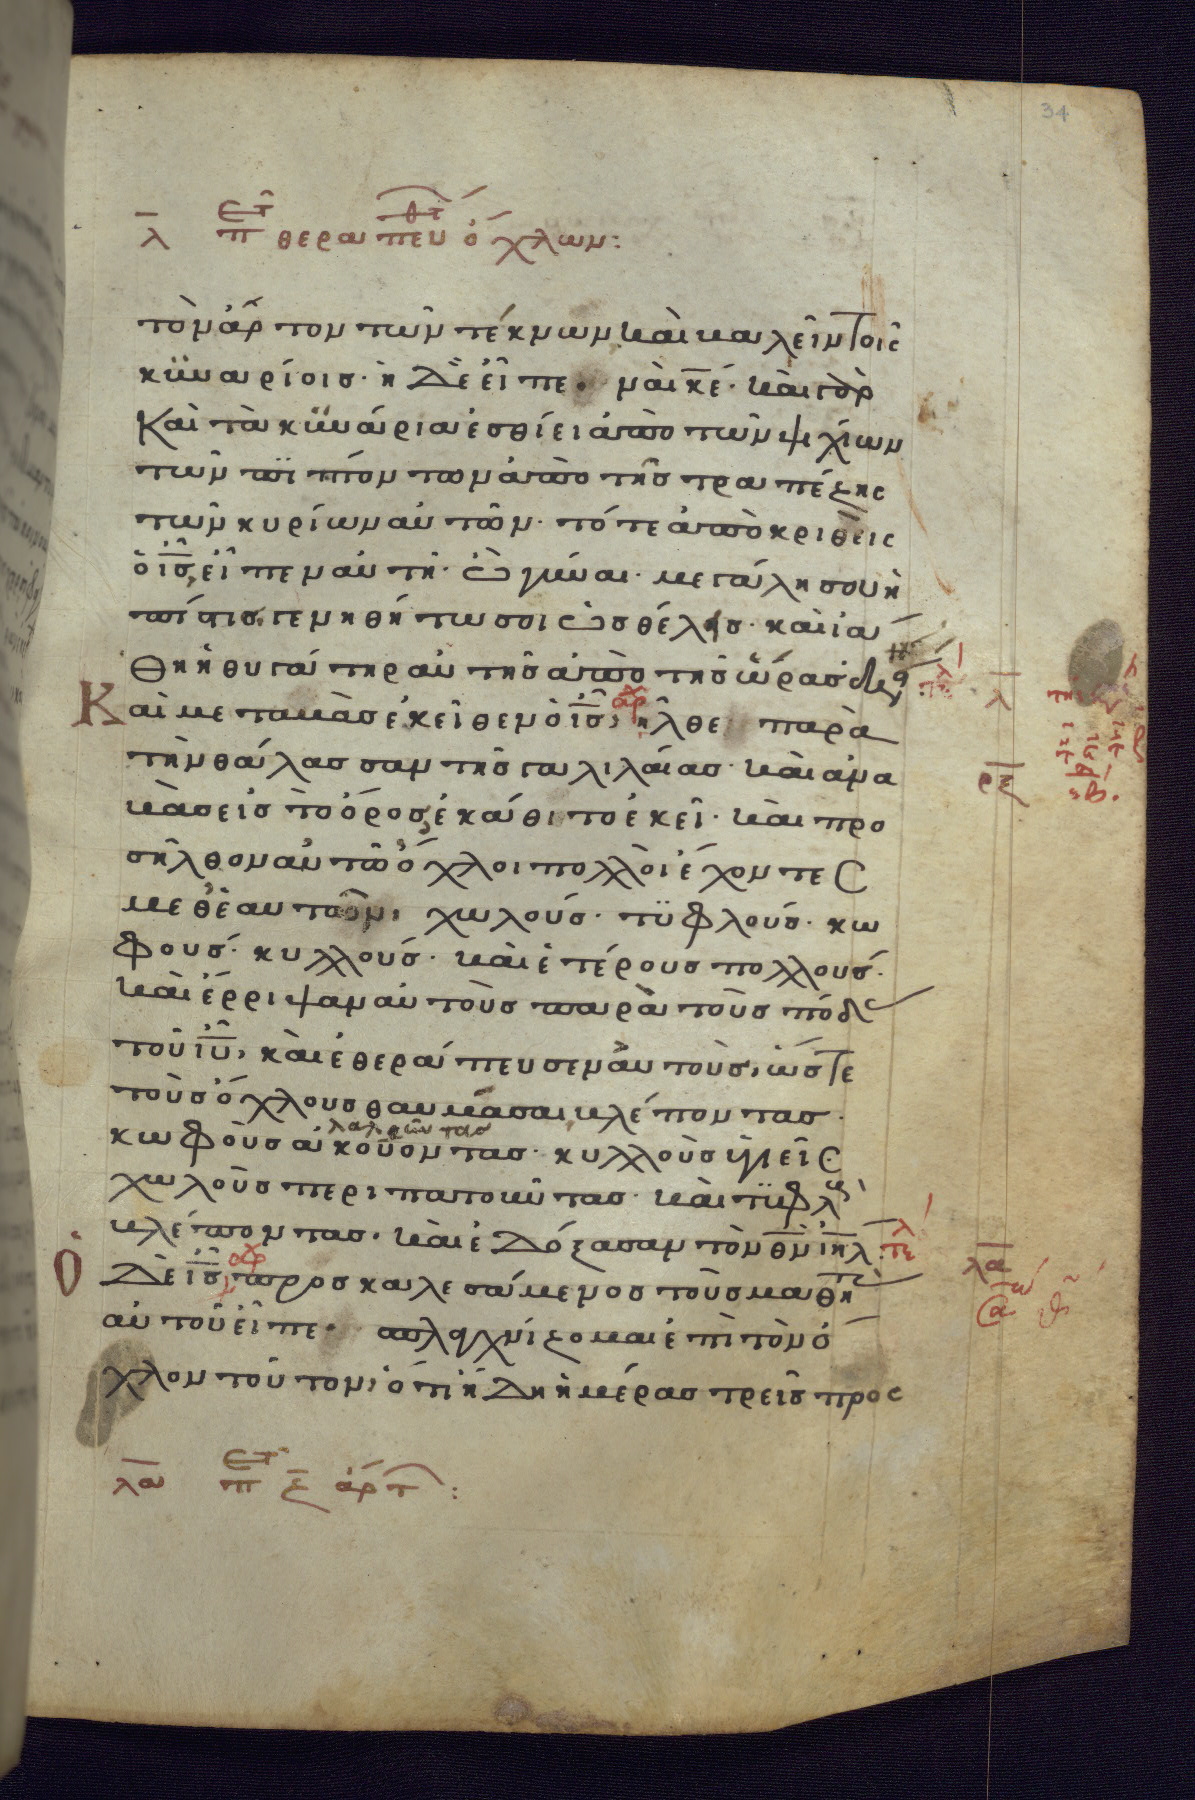 34
λ̅ π̅ θεραπευ ὄχλων:
τὸν ἄρτον τῶν τέκνων καὶ βαλεῖν τοῖς
κυναρίοις· ἡ δὲ εἶπε· ναὶ κ̅ε̅· καὶ γὰρ
καὶ τὰ κυνάρια ἐσθίει ἀπὸ τῶν ψιχίων
τῶν πιπτόντων ἀπὸ τῆς τραπέζης
τῶν κυρίων αὐτῶν· τότε ἀποκριθεὶς
ὁ ι̅ς̅, εἶπεν αὐτῆ· ὦ γύναι· μεγάλη σου ἡ
πίστις, γενηθήτω σοι ὡς θέλεις· καὶ ἰά
θη ἡ θυγάτηρ αὐτῆς ἀπὸ τῆς ὥρας
Καὶ μεταβὰς ἐκεῖθεν ὁ ι̅ς̅, ἦλθε παρὰ
τὴν θάλασσαν τῆς γαλιλαίας· καὶ ἀνα
βὰς εἰς τὸ ὄρος, ἐκάθιτο ἐκεῖ· καὶ προ
σῆλθον αὐτῶ ὄχλοι πολλοὶ ἔχοντες
μεθ ἑαυτῶν, χωλούς· τυφλούς· κω
φούς· κυλλούς· καὶ ἑτέρους πολλούς·
καὶ ἔρριψαν αὐτοὺς παρὰ τοὺς πόδ
τοῦ ι̅υ̅, καὶ ἐθεράπευσεν αὐτοὺς, ὥστε
τοὺς ὄχλους θαυμάσαι βλέποντας·
λαλοῦντας
κωφοὺς ἀκούοντας· κυλλοὺς ὑγιεῖς·
χωλοὺς περιπατοῦντας· καὶ τυφλ
βλέποντας· καὶ ἐδόξασαν τὸν θ̅ν̅ ι̅η̅λ̅·
Ὁ δὲ ι̅ς̅, προσκαλεσάμενος τοὺς μαθη
αὐτοῦ εἶπε· σπλαγχνίζομαι ἐπὶ τὸν ὄ
χλον τοῦτον, ὅτι ἤδη ἡμέρας τρεῖς προς
λ̅
λ̅α̅
λ̅α̅ π̅ ζ̅ ἄρτ: